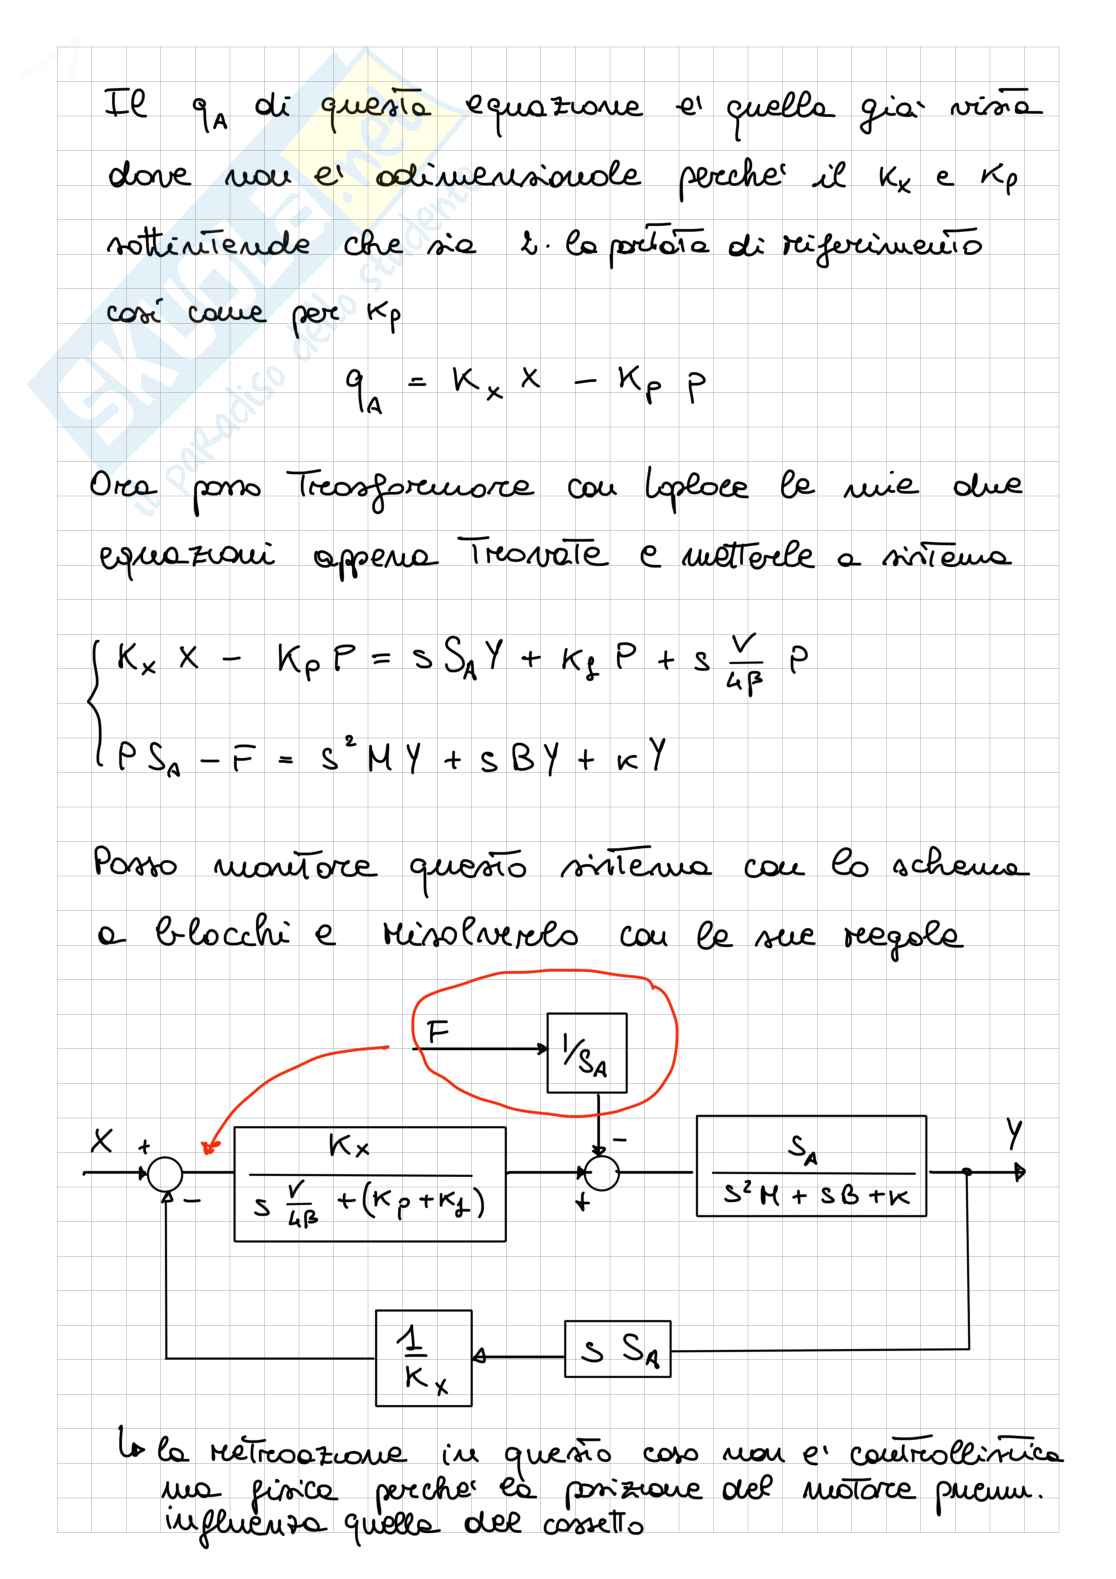 Il qA di questa equazione e' quella gia' vista
dove non e' adimensionale perche' il Kx e Kp
sottintende che sia 2. la portata di riferimento
cosi come per Kp
qA = Kx X - Kp P
Ora posso Trasformare con Laplace le mie due
equazioni appena Trovate e metterle a sistema
Kx X - Kp P = s SA Y + Kf P + s V/4β P
P SA - F = s² M Y + s B Y + K Y
Posso montare questo sistema con lo schema
a blocchi e risolverlo con le sue regole
F
1/SA
X + - Kx / s V/4β + (Kp + Kf) + - SA / s² M + s B + K Y
1/Kx s SA
↳ la retroazione in questo caso non e' controllistica
ma fisica perche' la posizione del motore pneum.
influenza quella del cassetto
SKUOLA.net
il paradiso dello studente